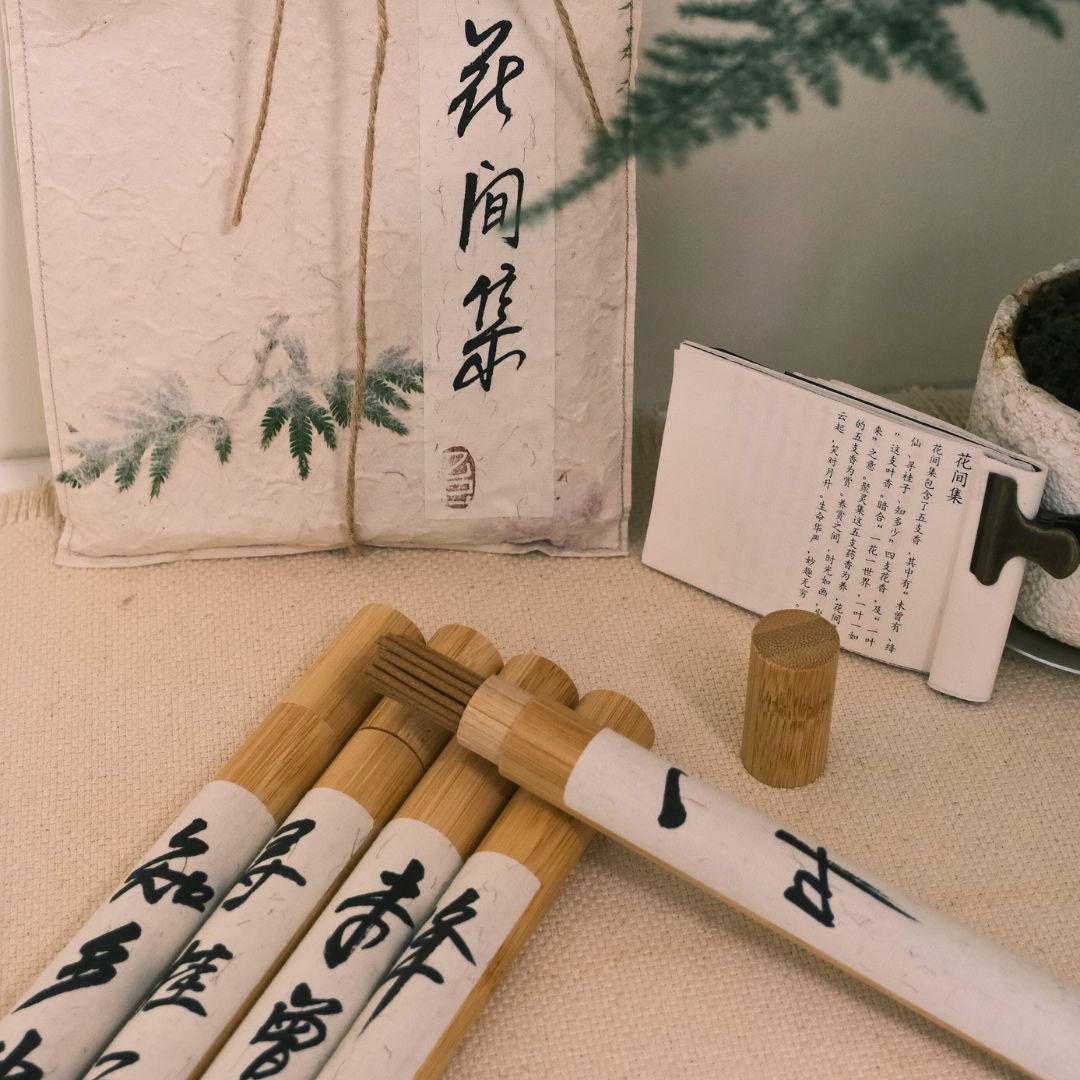 花间集
花间集
花间集包含了五支香,其中有“未曾有、绛
仙、寻桂子、知多少”四支花香,及“一叶
”这支叶香。暗合“一花一世界,一叶一如
来”之意。聚灵集这五支药香为养,花间
的五支香为赏。养赏之间,时光如画,
云起,笑对月升。生命华严,妙趣无穷。
知多
寻桂
未曾
绛
一叶